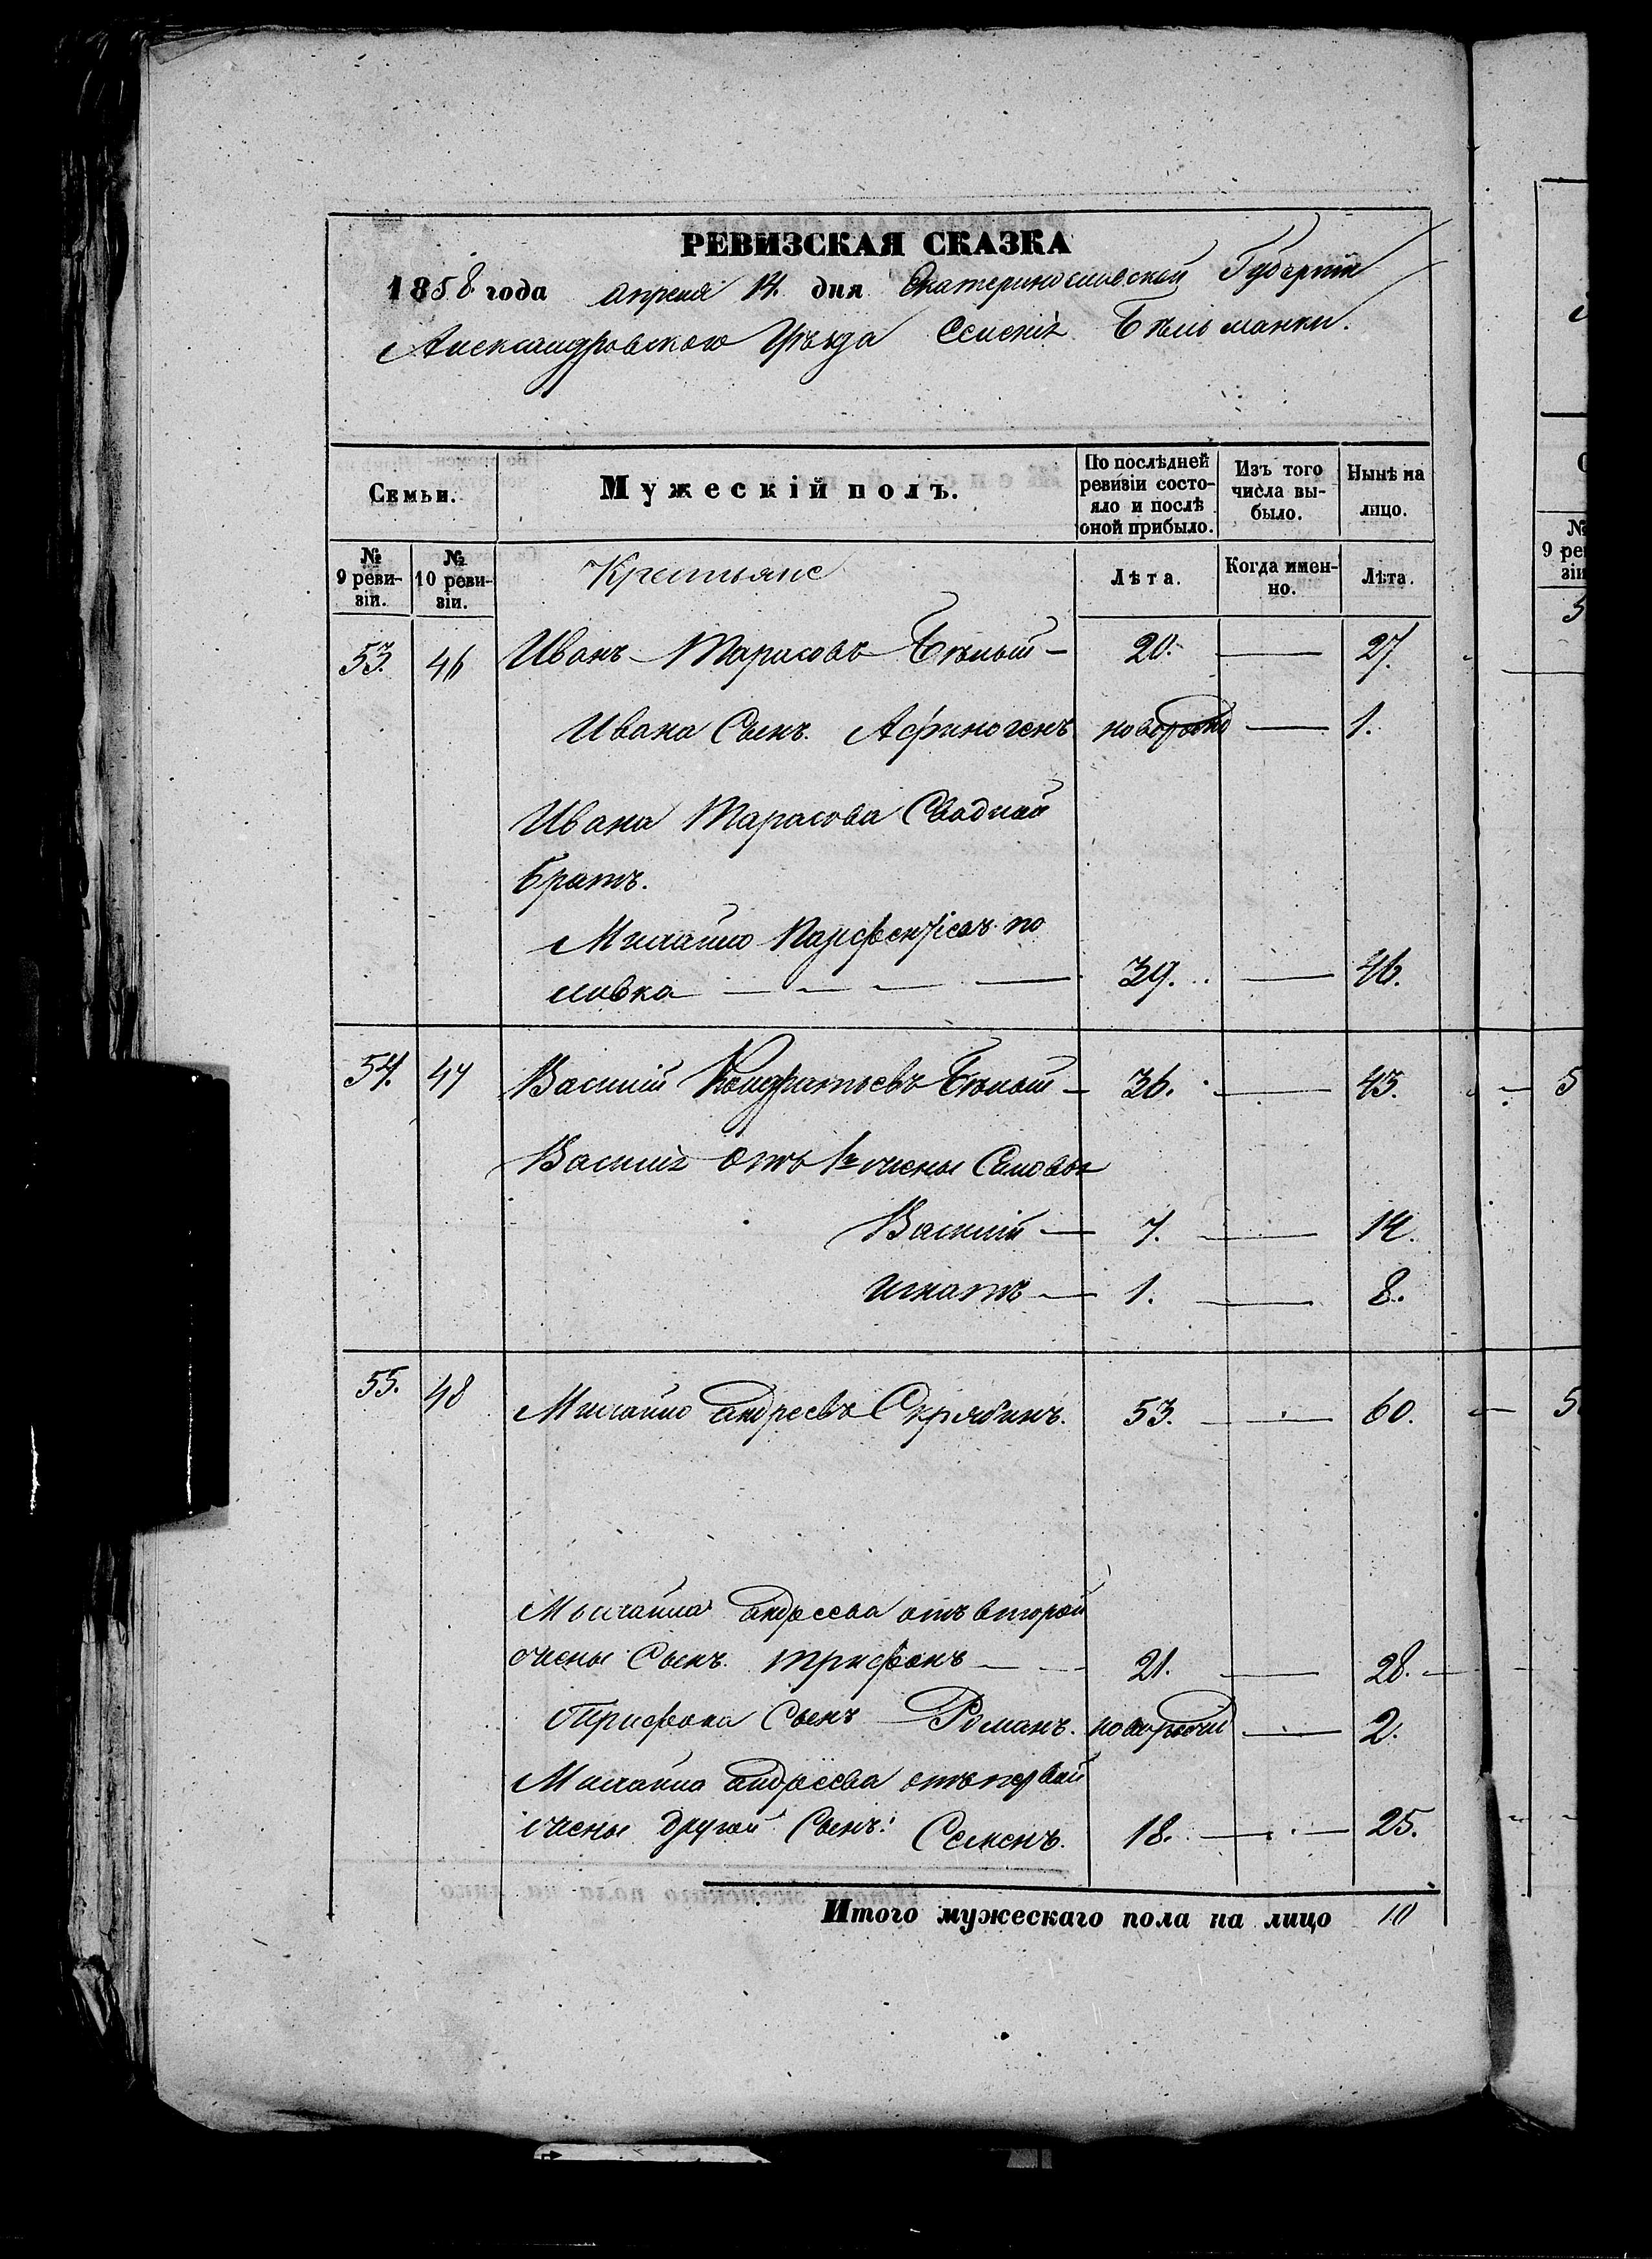 РЕВИЗСКАЯ СКАЗКА
1858 года апреля 14 дня Екатеринославской Губерніи
Александровского Уѣзда Селенія Бѣльманки.
Семьи.
Мужескій полъ.
По послѣдней ревизіи состояло и послѣ оной прибыло.
Изъ того числа выбыло.
Нынѣ на лицо.
№ 9 ревизіи.
№ 10 ревизіи.
Крестьяне
Лѣта.
Когда именно.
Лѣта.
53. 46 Иванъ Тарасовъ Бѣлый – 20. — 27.
Ивана Сынъ Афиногенъ новорожд — 1.
Ивана Тарасова Сводной
братъ.
Михайло Парфентіевъ по
ловка — 39. — 46.
54. 47 Василій Кондратьевъ Бѣлый – 36. — 43.
Василія отъ 1й жены Сыновья
Василій — 7. — 14.
Игнатъ — 1. — 8.
55. 48 Михайло Андреевъ Скрябинъ. 53. — 60.
Михайла Андреева отъ второй
жены Сынъ Трифонъ — 21. — 28.
Трифона Сынъ Романъ. новорожд — 2.
Михайла Андреева отъ первой
жены другой Сынъ: Семенъ. 18. — 25.
Итого мужескаго пола на лицо 10